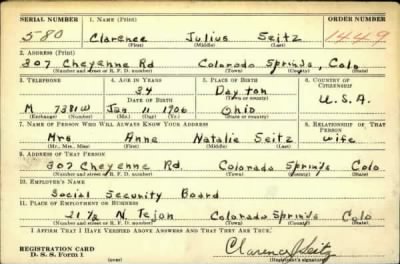 SERIAL NUMBER 1. NAME (Print) ORDER NUMBER
580 Clarence Julius Seitz 1449
(First) (Middle) (Last)
2. ADDRESS (Print)
307 Cheyenne Rd Colorado Springs, Colo
(Number and street or R. F. D. number) (Town) (County) (State)
3. TELEPHONE 4. AGE IN YEARS 5. PLACE OF BIRTH 6. COUNTRY OF CITIZENSHIP
34 Dayton
DATE OF BIRTH (Town or county)
M 7381W Jan 11 1906 Ohio U.S.A.
(Exchange) (Number) (Mo.) (Day) (Yr.) (State or country)
7. NAME OF PERSON WHO WILL ALWAYS KNOW YOUR ADDRESS 8. RELATIONSHIP OF THAT PERSON
Mrs Anne Natalie Seitz wife
(Mr., Mrs., Miss) (First) (Middle) (Last)
9. ADDRESS OF THAT PERSON
307 Cheyenne Rd. Colorado Springs Colo
(Number and street or R. F. D. number) (Town) (County) (State)
10. EMPLOYER'S NAME
Social Security Board
11. PLACE OF EMPLOYMENT OR BUSINESS
21 ½ N. Tejon Colorado Springs Colo
(Number and street or R. F. D. number) (Town) (County) (State)
I AFFIRM THAT I HAVE VERIFIED ABOVE ANSWERS AND THAT THEY ARE TRUE.
REGISTRATION CARD
D. S. S. Form 1 (over) Clarence J Seitz
(Registrant's signature)